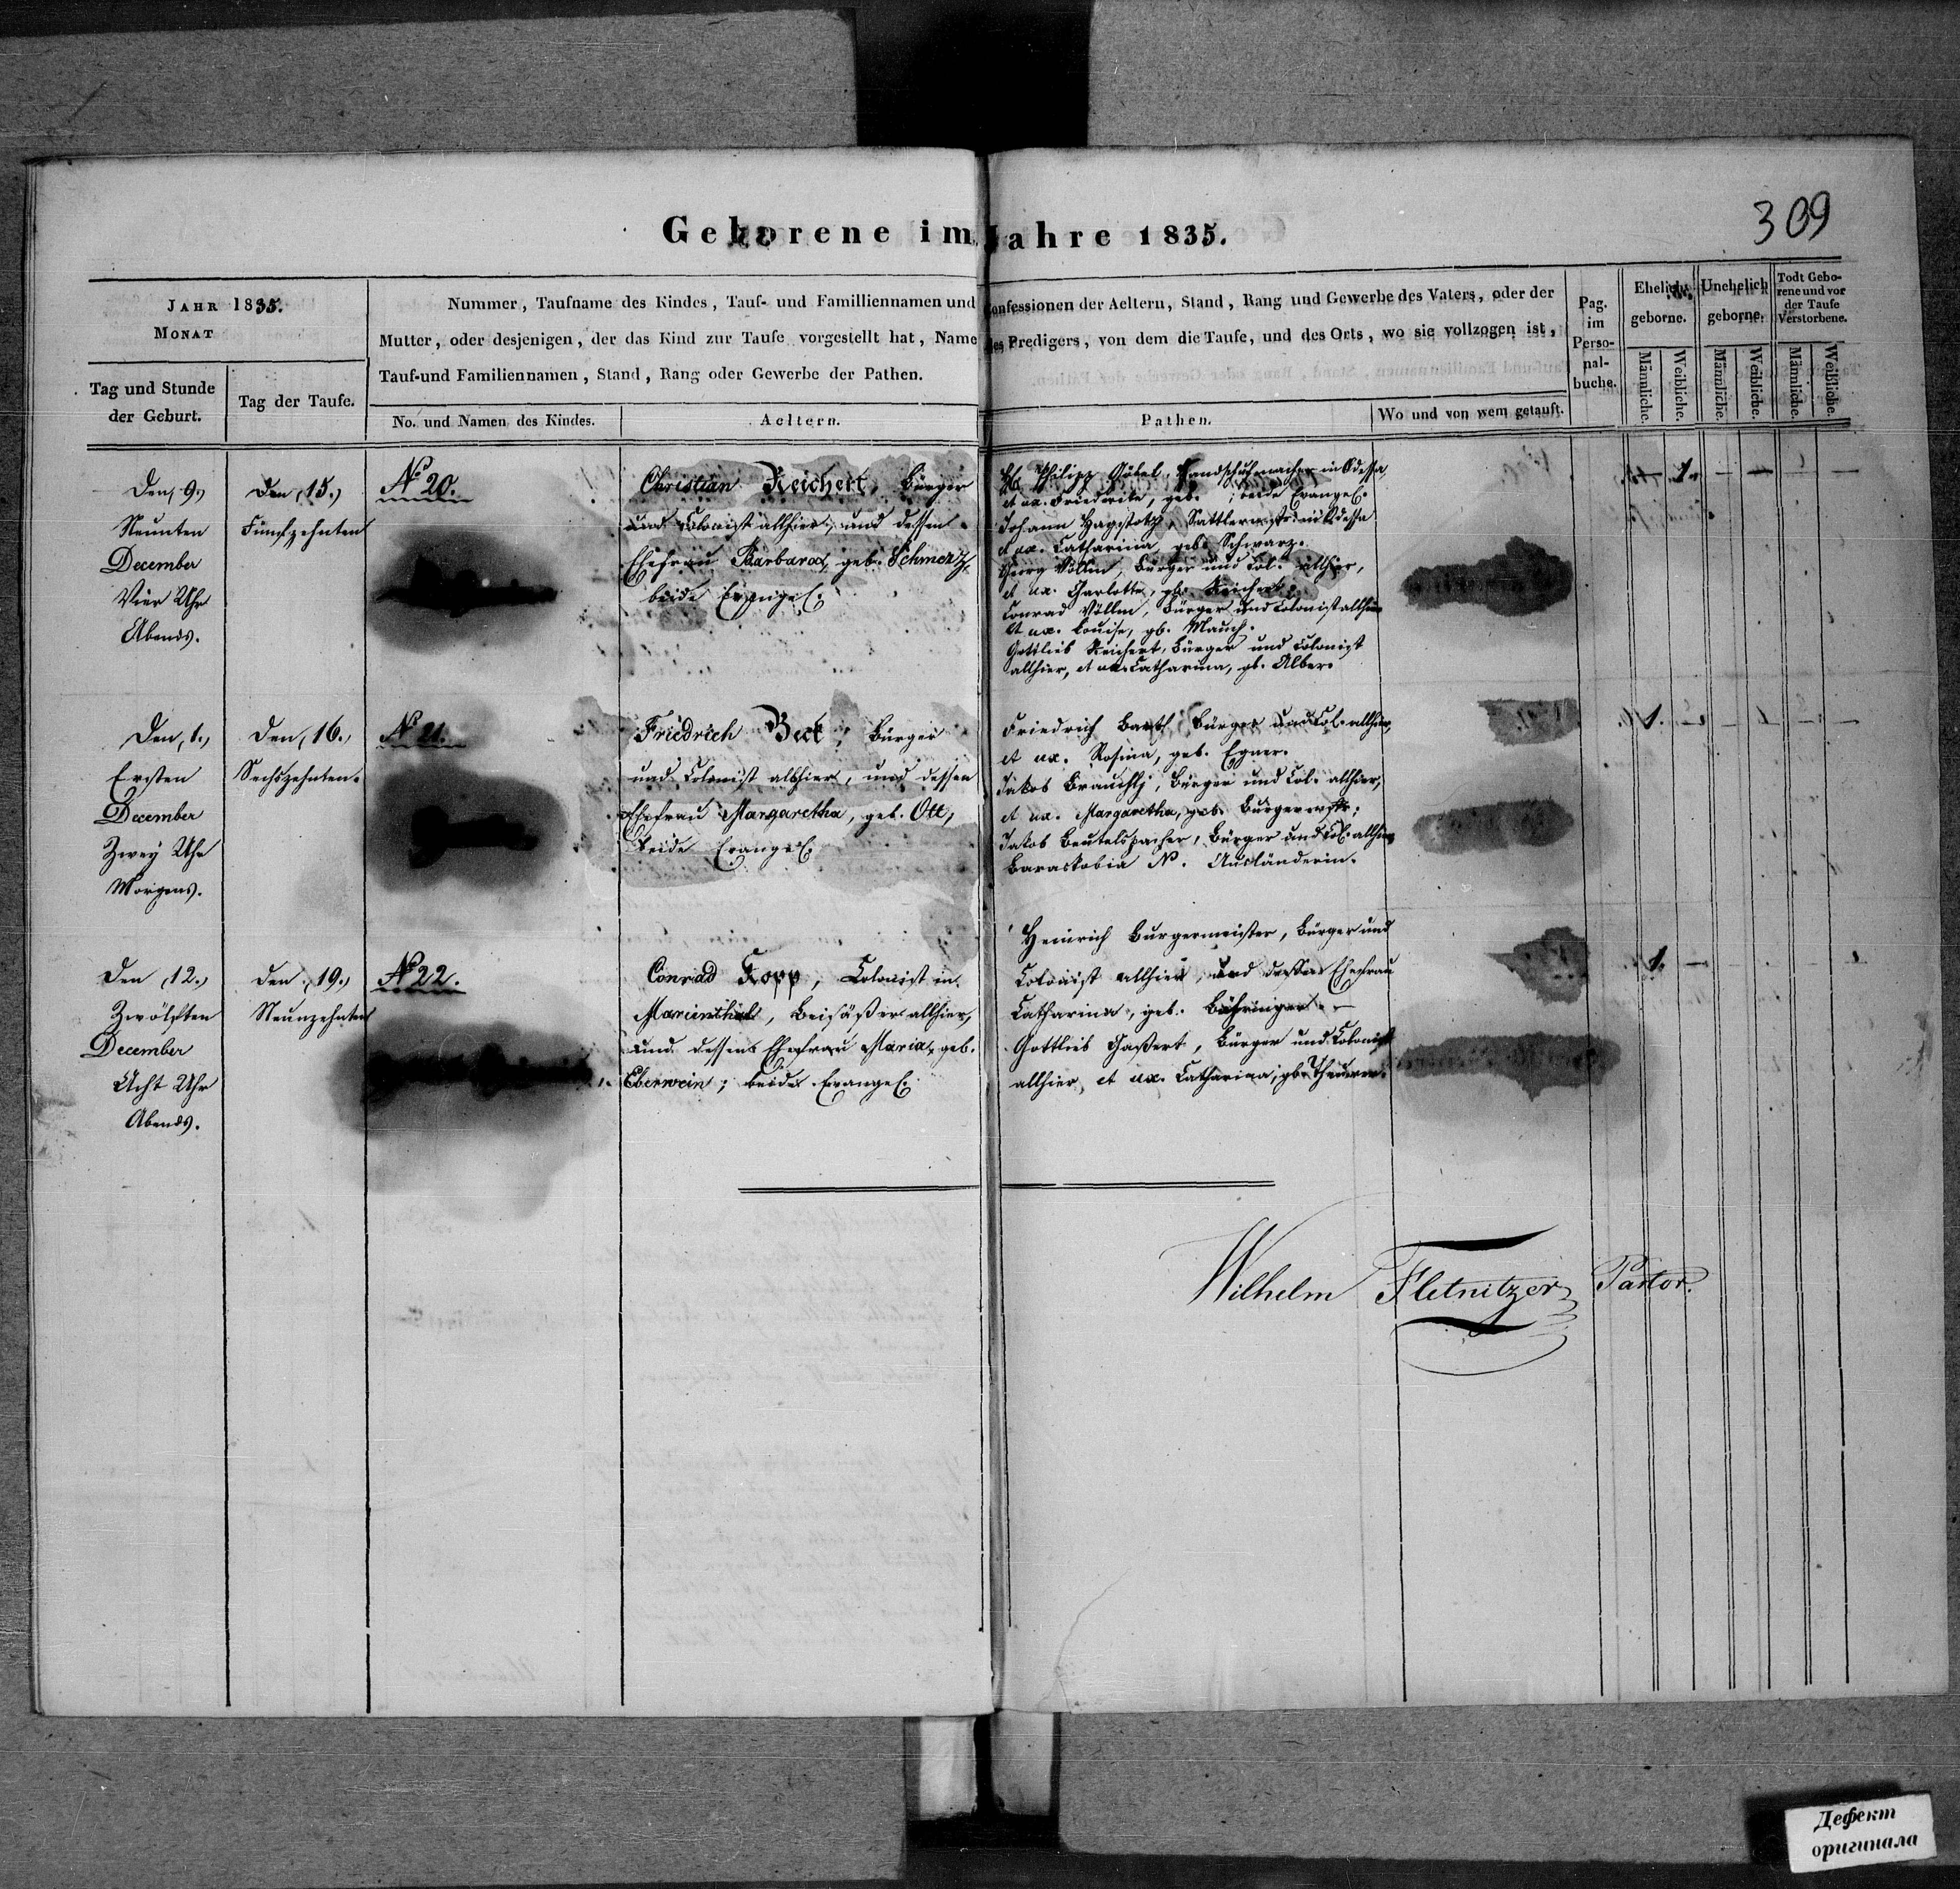 309
Geborene im Jahre 1835.
JAHR 1835.
MONAT
Tag und Stunde
der Geburt.
Tag der Taufe.
Nummer, Taufname des Kindes, Tauf- und Familliennamen und Confessionen der Aeltern, Stand, Rang und Gewerbe des Vaters, oder der
Mutter, oder desjenigen, der das Kind zur Taufe vorgestellt hat, Name des Predigers, von dem die Taufe, und des Orts, wo sie vollzogen ist,
Tauf-und Familiennamen, Stand, Rang oder Gewerbe der Pathen.
No. und Namen des Kindes.
Aeltern.
Pathen.
Wo und von wem getauft.
Pag.
im
Perso-
nal-
buche.
Ehelich
geborne.
Unehelich
geborne.
Todt Gebo-
rene und vor
der Taufe
Verstorbene.
Männliche.
Weibliche.
Männliche.
Weibliche.
Männliche.
Weibliche.
Den, 9.,
Neunten
December
Vier Uhr
Abends.
Den, 15.,
Fünfzehnten
No 20.
Christian Reichert, Bürger
und Colonist allhier, und dessen
Ehefrau Barbara, geb. Schmertz,
beide Evangel.
Philipp Göbel, Handschuhmacher in Odessa,
et ux. Friederike, geb. ; beide Evangel.
Johann Hagstotz, Sattlermstr. in Odessa
et ux. Catharina, geb. Schwarz.
Georg Völlm, Bürger und Col. allhier,
et ux. Charlotte, gb. Reichert.
Conrad Völlm, Bürger und Colonist allhier
et ux. Louise, gb. Mauch.
Gottlieb Reichert, Bürger und Colonist
allhier, et ux. Catharina, gb. Alber.
1.
Den, 1.,
Ersten
December
Zwey Uhr
Morgens.
Den, 16.,
Sechszehnten.
No 21.
Friedrich Beck, Bürger
und Colonist allhier, und dessen
Ehefrau Margaretha, geb. Ott,
beide Evangel.
Friedrich Barth, Bürger und Col. allhier,
et ux. Rosina, geb. Egner.
Jakob Brauchly, Bürger und Col. allhier,
et ux. Margaretha, geb. Burgermstr.;
Jakob Beutelspacher, Bürger und Col. allhier
N. Ausländerin.
1.
Den, 12.,
Zwölften
December
Acht Uhr
Abends.
Den, 19.,
Neunzehnten
No 22.
Conrad Kopp, Colonist in
Marienthal, Beisäßer allhier,
und dessen Ehefrau Maria, geb.
Eberwein; beide Evangel.
Heinrich Burgermeister, Bürger und
Colonist allhier, und dessen Ehefrau
Catharina, geb. Bähringer.
Gottlieb Gaßert, Bürger und Colonist
allhier, et ux. Catharina, gb. Theurer.
1.
Wilhelm Fletnitzer, Pastor.
Дефект
оригинала